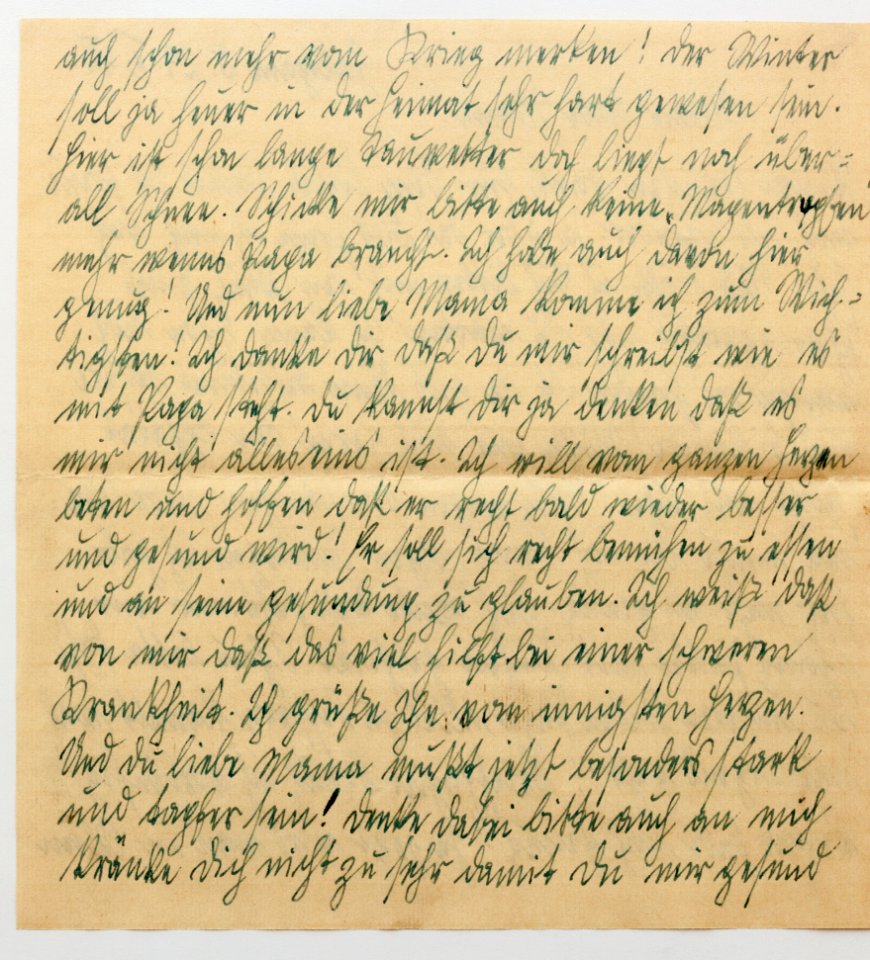 auch schon mehr vom Krieg merken! Der Winter
soll ja heuer in der Heimat sehr hart gewesen sein.
Hier ist schon lange Tauwetter doch liegt noch über=
all Schnee. Schicke mir bitte auch keine „Magentropfen"
mehr wenns Papa braucht. Ich habe auch davon hier
genug! Und nun liebe Mama komme ich zum Wich-=
tigsten! Ich danke Dir daß Du mir schreibst wie es
mit Papa steht. Du kannst Dir ja denken daß es
mir nicht alleseins ist. Ich will vom ganzen Herzen
beten und hoffen daß er recht bald wieder besser
und gesund wird! Er soll sich recht bemühen zu essen
und an seine gesundung zu glauben. Ich weiß daß
von mir daß das viel hilft bei einer schweren
Krankheit. Ich grüße Ihn vom innigsten Herzen.
Und Du liebe Mama mußt jetzt besonders stark
und tapfer sein! Denke dabei bitte auch an mich
Kränke Dich nicht zu sehr damit Du mir gesund